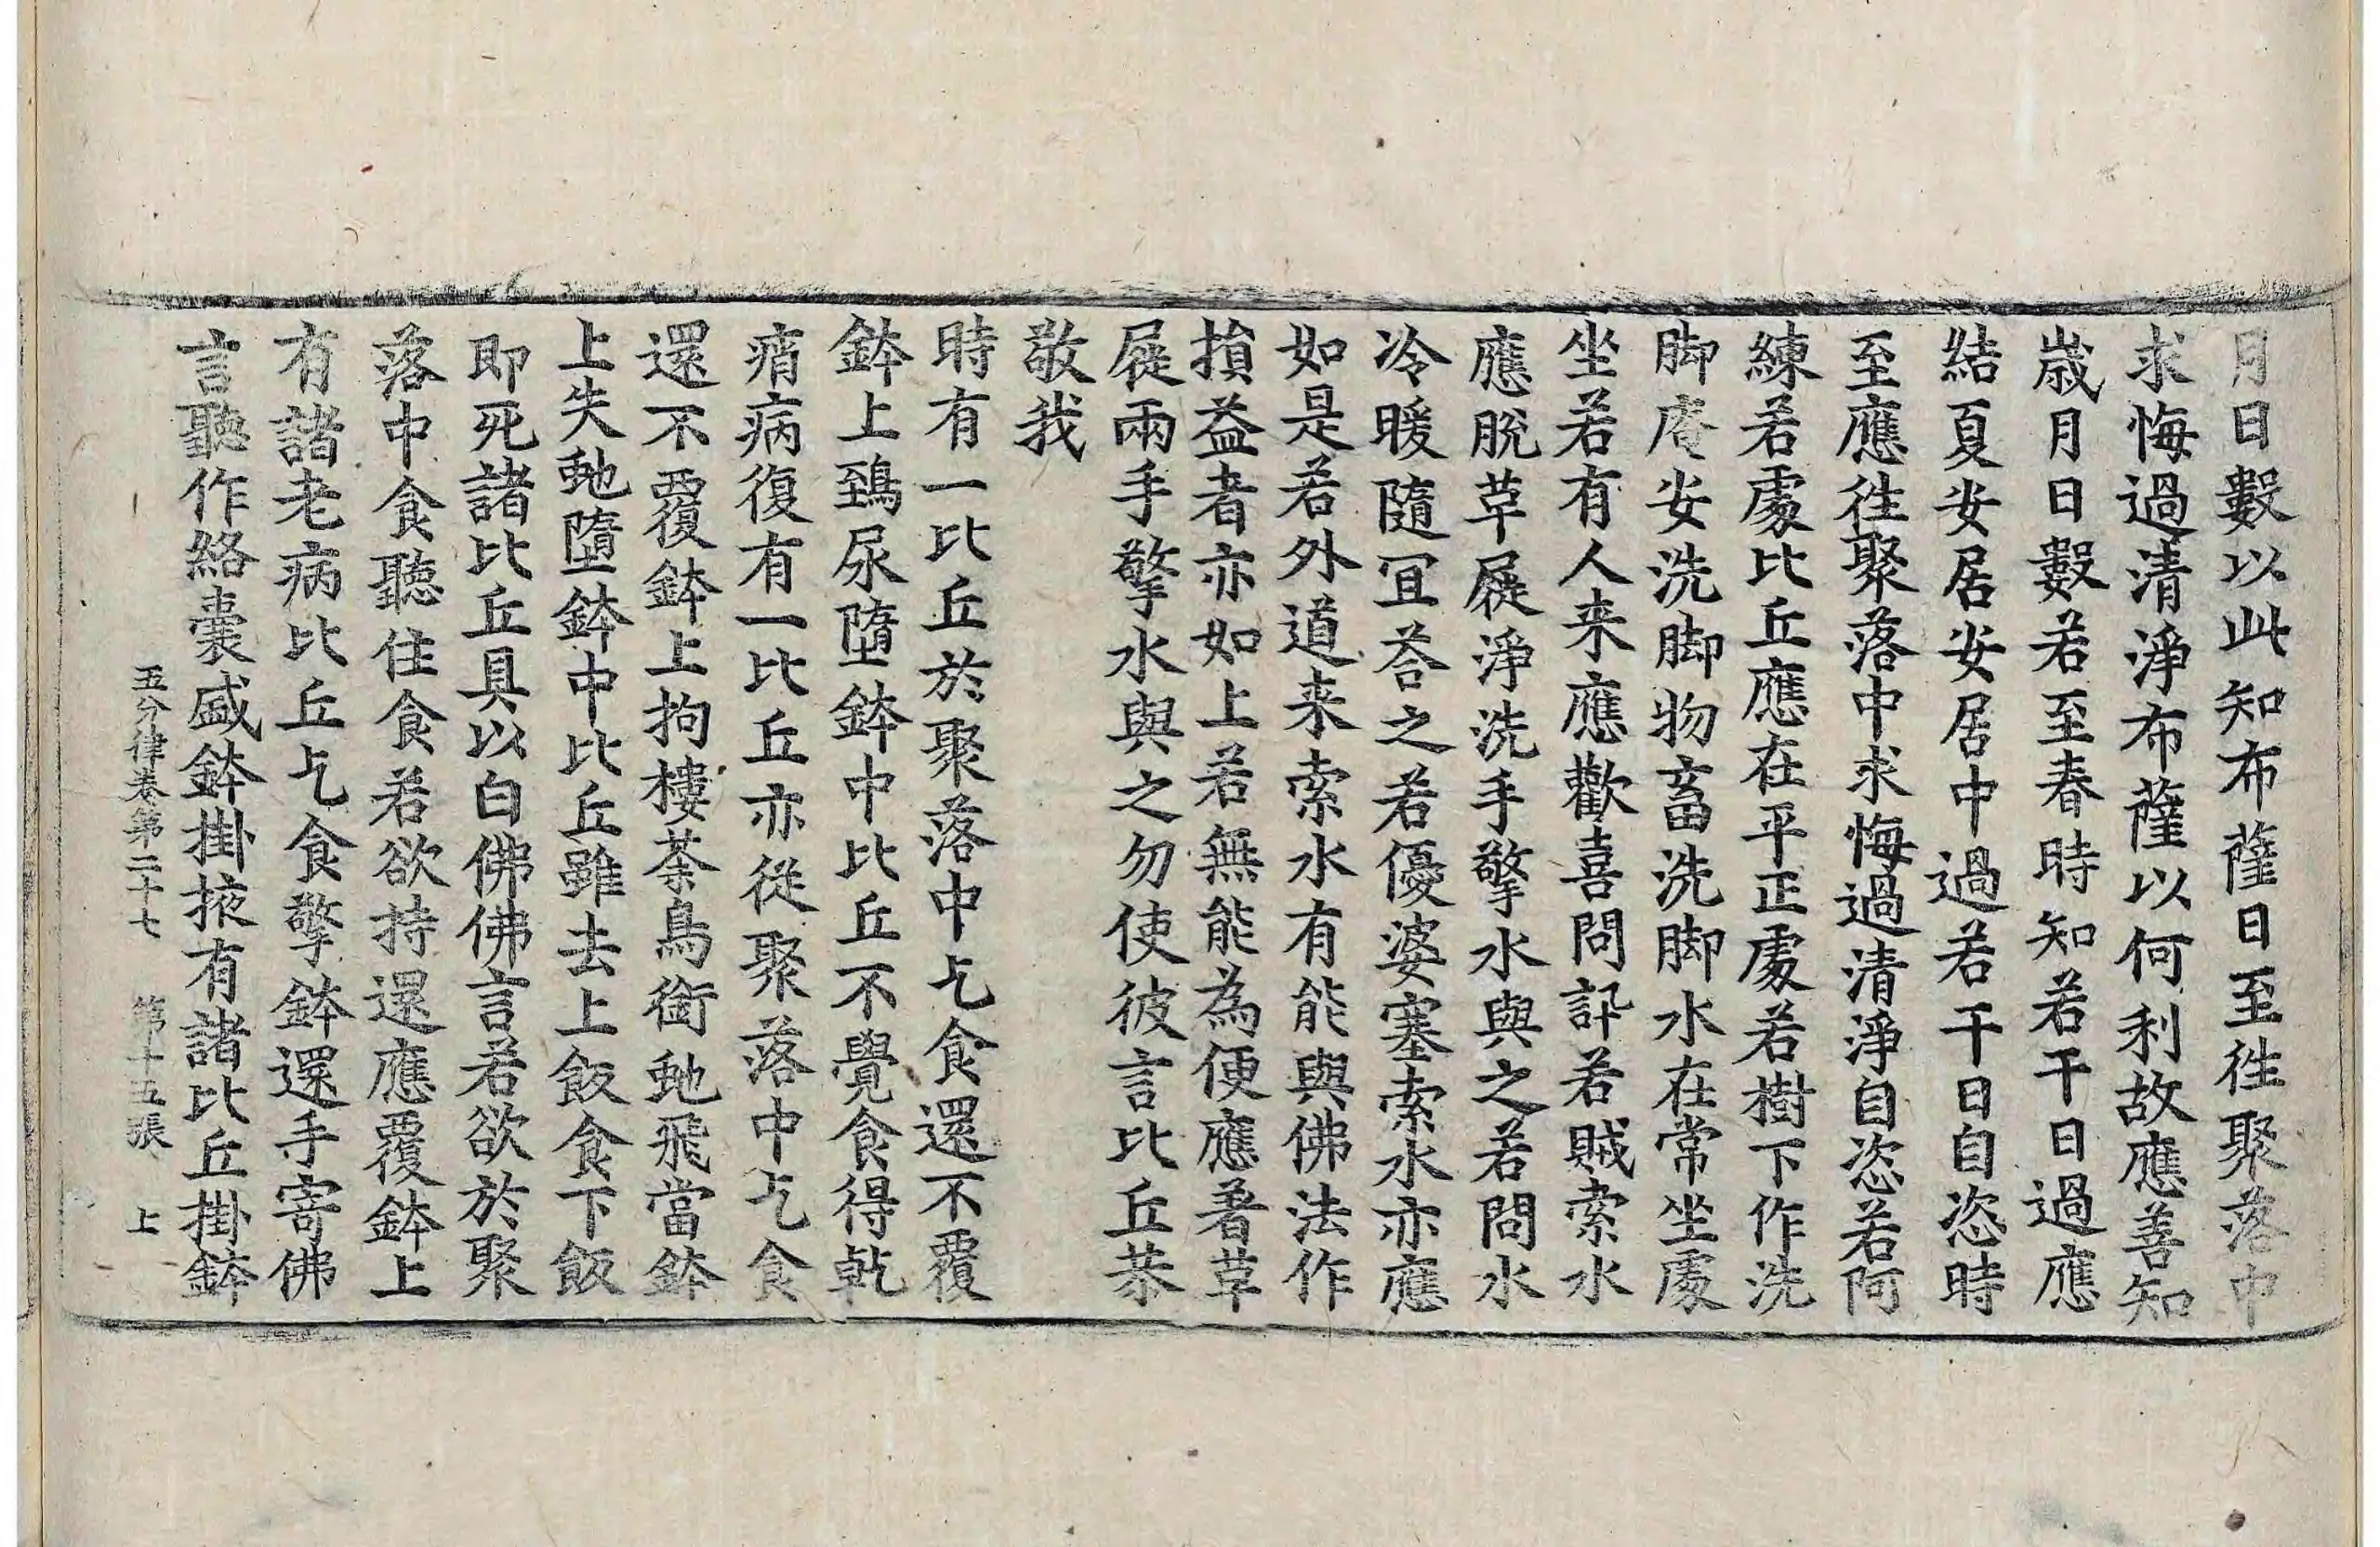 月日數以此知布薩日至往聚落中
求悔過清淨布薩以何利故應善知
歲月日數若至春時知若干日過應
結夏安居安居中過若干日自恣時
至應往聚落中求悔過清淨自恣若阿
練若處比丘應在平正處若樹下作洗
脚庵安洗脚物畜洗脚水在常坐處
坐若有人来應歡喜問訊若賊索水
應脫草屣淨洗手擎水與之若問水
冷暖隨冝荅之若優婆塞索水亦應
如是若外道来索水有能與佛法作
損益者亦如上若無能為便應著草
屣兩手擎水與之勿使彼言比丘恭
敬我
時有一比丘於聚落中乞食還不覆
鉢上鵄尿墮鉢中比丘不覺食得乾
痟病復有一比丘亦從聚落中乞食
還不覆鉢上拘樓荼鳥銜虵飛當鉢
上失虵墮鉢中比丘雖去上飯食下飯
即死諸比丘具以白佛佛言若欲於聚
落中食聽住食若欲持還應覆鉢上
有諸老病比丘乞食擎鉢還手寄佛
言聽作絡囊盛鉢掛掖有諸比丘掛鉢
五分律卷第二十七 第十五張 上